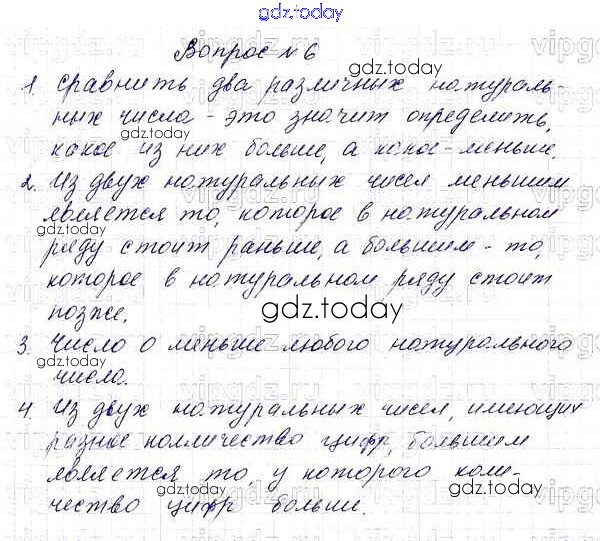 gdz.today
Вопрос №6
gdz.today
1. Сравнить два различных натураль-
ных числа - это значит определить,
gdz.today
какое из них больше, а какое - меньше.
2. Из двух натуральных чисел меньшим
является то, которое в натуральном
gdz.today
gdz.today
ряду стоит раньше, а большим - то,
которое в натуральном ряду стоит
позже.
gdz.today
3. Число 0 меньше любого натурального
gdz.today
числа.
4. Из двух натуральных чисел, имеющих
gdz.today
разное колличество цифр, большим
является то, у которого коли-
gdz.today
gdz.today
чество цифр больше.